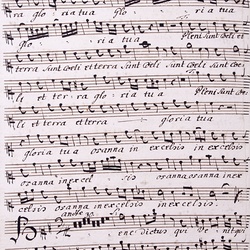 ra glo ria tua Glo ria tua
gloria tua Pleni sunt Coeli et
et terra sunt Coeli et terra sunt Coeli sunt Coeli
li et terra gloria tua Pleni sunt Coe
li et terra gloria tua
gloria tua osanna in excelsis in excelsis
osanna in excel sis osanna in excel
celsis osanna in excelsis osanna in excelsis.
andte
Bene dictus qui Ve nit qui